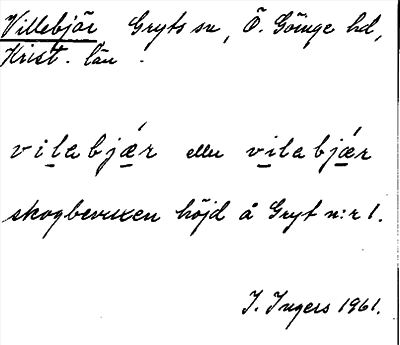 Villebjär Gryts sn, Ö. Göinge hd,
Krist. län.
vilabjǽr eller vilabjǽr
skogbevuxen höjd å Gryt n:r 1.
I. Ingers 1961.